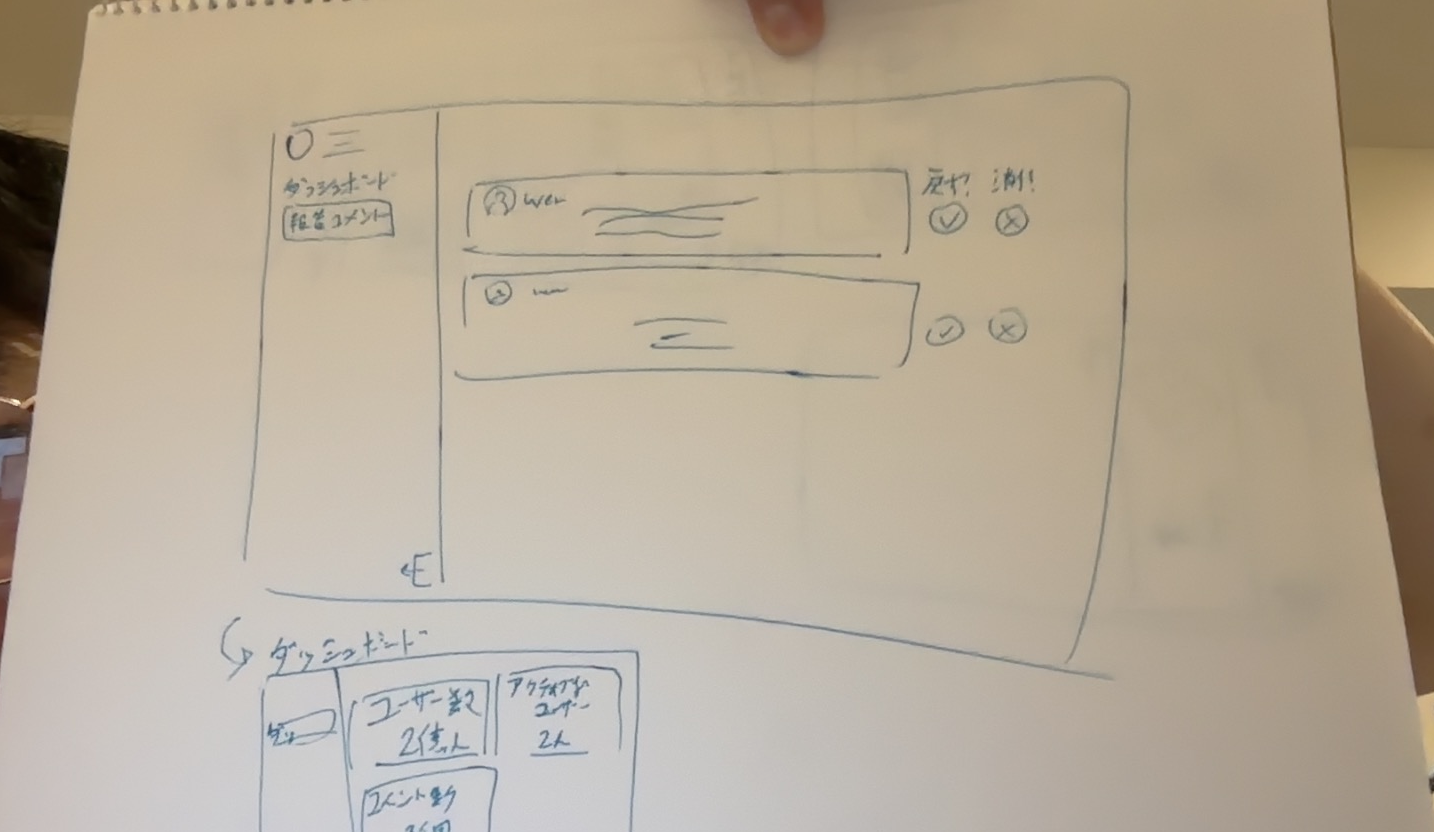 ダッシュボード
報告コメント
user
戻す! 消す!
ダッシュボード
ユーザー数
2億人
アクティブな
ユーザー
2人
コメント数